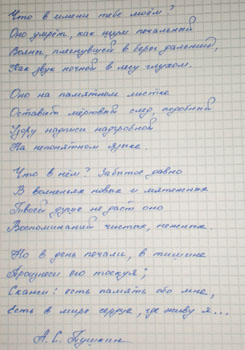 Что в имени тебе моём?
Оно умрёт, как шум печальный
Волны, плеснувшей в берег дальный,
Как звук ночной в лесу глухом.
Оно на памятном листке
Оставит мёртвый след, подобный
Узору надписи надгробной
На непонятном языке.
Что в нём? Забытое давно
В волненьях новых и мятежных
Твоей душе не даст оно
Воспоминаний чистых, нежных.
Но в день печали, в тишине
Произнеси его тоскуя;
Скажи: есть память обо мне,
Есть в мире сердце, где живу я...
А.С. Пушкин